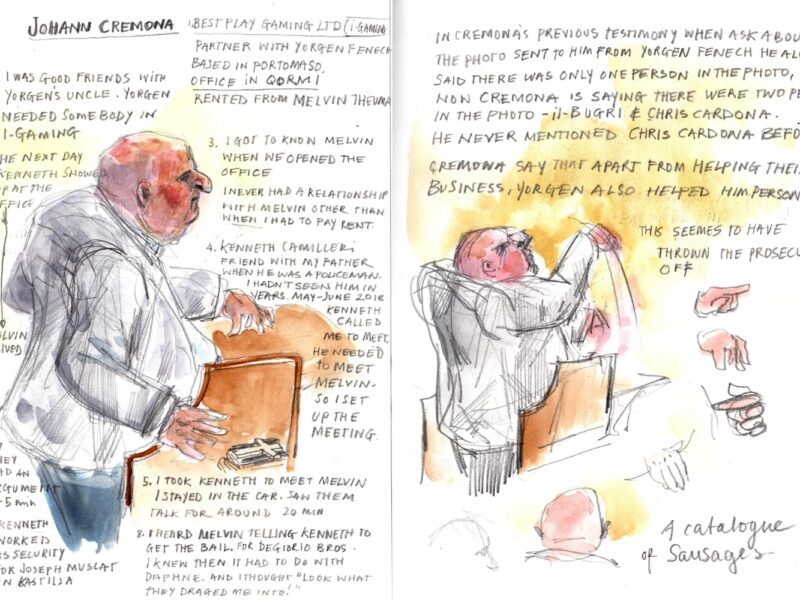 JOHANN CREMONA
1. BEST PLAY GAMING LTD (I-GAMING
PARTNER WITH YORGEN FENECH
BASED IN PORTOMASO
OFFICE IN QORMI
RENTED FROM MELVIN THEUMA
I WAS GOOD FRIENDS WITH
YORGEN'S UNCLE. YORGEN
NEEDED SOMEBODY IN
I-GAMING
HE NEXT DAY
KENNETH SHOWED
P AT THE
OFFICE
ELVIN
IVED
HEY
AD AN
RGUMENT
-5 min
KENNETH
WORKED
AS SECURITY
FOR JOSEPH MUSCAT
IN KASTILJA
3. I GOT TO KNOW MELVIN
WHEN WE OPENED THE
OFFICE
I NEVER HAD A RELATIONSHIP
WITH MELVIN OTHER THAN
WHEN I HAD TO PAY RENT.
4. KENNETH CAMILLERI
FRIEND WITH MY FATHER
WHEN HE WAS A POLICEMAN.
I HADN'T SEEN HIM IN
YEARS. MAY-JUNE 2018
KENNETH
CALLED
ME TO MEET.
HE NEEDED
TO MEET
MELVIN.
SO I SET
UP THE
MEETING.
5. I TOOK KENNETH TO MEET MELVIN
I STAYED IN THE CAR. SAW THEM
TALK FOR AROUND 20 MIN
8. I HEARD MELVIN TELLING KENNETH TO
GET THE BAIL. FOR DEGIORIO BROS.
I KNEW THEN IT HAD TO DO WITH
DAPHNE. AND I THOUGHT "LOOK WHAT
THEY DRAGED ME INTO!"
IN CREMONA'S PREVIOUS TESTIMONY WHEN ASK ABOU
THE PHOTO SENT TO HIM FROM YORGEN FENECH HE AL
SAID THERE WAS ONLY ONE PERSON IN THE PHOTO,
NOW CREMONA IS SAYING THERE WERE TWO PE
IN THE PHOTO - il-BUGRI & CHRIS CARDONA.
HE NEVER MENTIONED CHRIS CARDONA BEFO
CREMONA SAY THAT APART FROM HELPING THEIR
BUSINESS, YORGEN ALSO HELPED HIM PERSON
THIS SEEMS TO HAVE
THROWN THE PROSECU
OFF
A catalogue
of Sausages